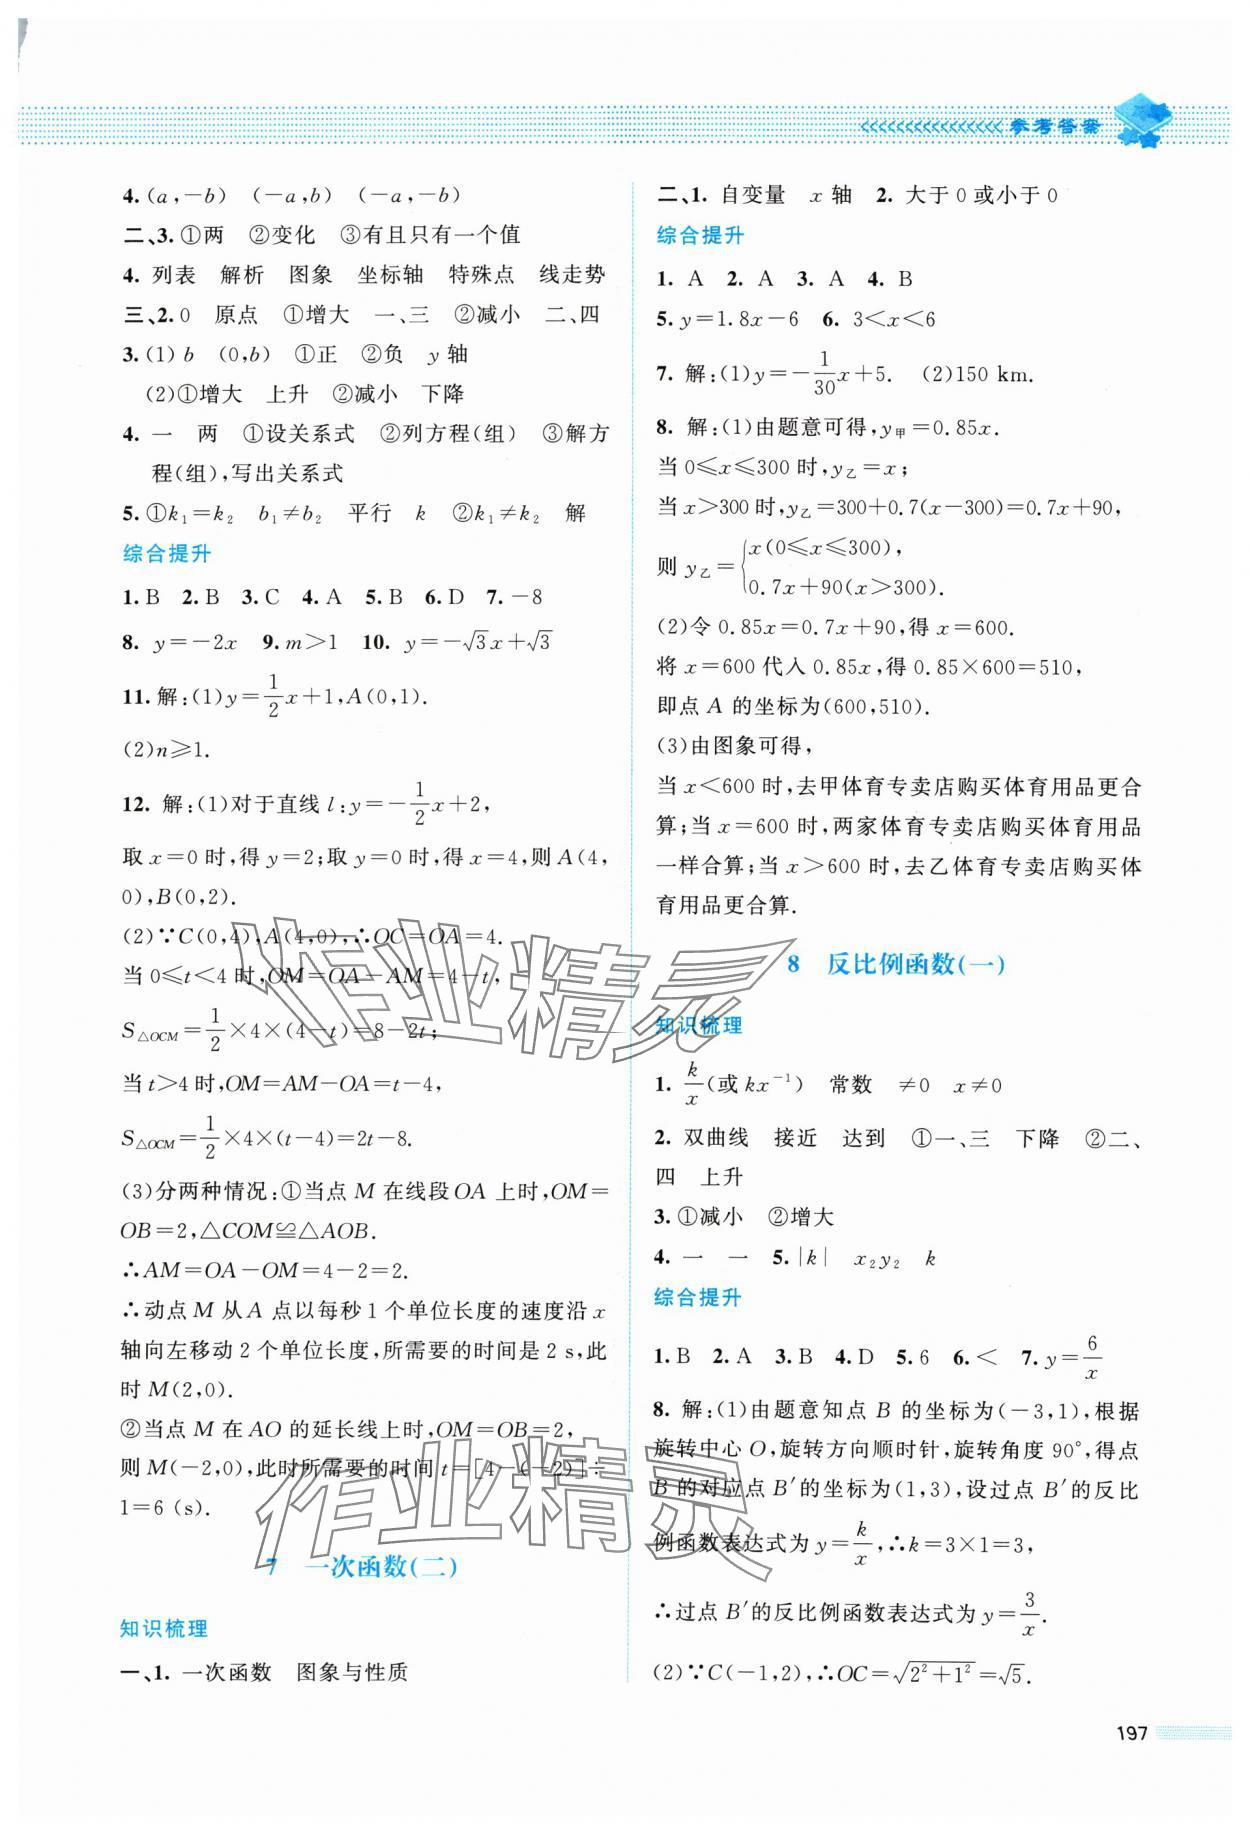 参考答案
4. (a,-b) (-a,b) (-a,-b)
二、3. ①两 ②变化 ③有且只有一个值
4. 列表 解析 图象 坐标轴 特殊点 线走势
三、2. 0 原点 ①增大 一、三 ②减小 二、四
3. (1) b (0,b) ①正 ②负 y 轴
(2)①增大 上升 ②减小 下降
4. 一 两 ①设关系式 ②列方程(组) ③解方
程(组),写出关系式
5. ①k₁=k₂ b₁≠b₂ 平行 k ②k₁≠k₂ 解
综合提升
1. B 2. B 3. C 4. A 5. B 6. D 7. -8
8. y=-2x 9. m>1 10. y=-√3x+√3
11. 解:(1)y=1/2x+1,A(0,1).
(2)n≥1.
12. 解:(1)对于直线 l:y=-1/2x+2,
取 x=0 时,得 y=2;取 y=0 时,得 x=4,则 A(4,
0),B(0,2).
(2)∵C(0,4),A(4,0),∴OC=OA=4.
当 0≤t<4 时,OM=OA-AM=4-t,
S△OCM=1/2×4×(4-t)=8-2t;
当 t>4 时,OM=AM-OA=t-4,
S△OCM=1/2×4×(t-4)=2t-8.
(3)分两种情况:①当点 M 在线段 OA 上时,OM=
OB=2,△COM≌△AOB.
∴AM=OA-OM=4-2=2.
∴动点 M 从 A 点以每秒 1 个单位长度的速度沿 x
轴向左移动 2 个单位长度,所需要的时间是 2 s,此
时 M(2,0).
②当点 M 在 AO 的延长线上时,OM=OB=2,
则 M(-2,0),此时所需要的时间 t=[4-(-2)]÷
1=6 (s).
7 一次函数(二)
知识梳理
一、1. 一次函数 图象与性质
二、1. 自变量 x 轴 2. 大于 0 或小于 0
综合提升
1. A 2. A 3. A 4. B
5. y=1.8x-6 6. 3<x<6
7. 解:(1)y=-1/30x+5. (2)150 km.
8. 解:(1)由题意可得,y甲=0.85x.
当 0≤x≤300 时,y乙=x;
当 x>300 时,y乙=300+0.7(x-300)=0.7x+90,
则 y乙={x(0≤x≤300),
0.7x+90(x>300).
(2)令 0.85x=0.7x+90,得 x=600.
将 x=600 代入 0.85x,得 0.85×600=510,
即点 A 的坐标为(600,510).
(3)由图象可得,
当 x<600 时,去甲体育专卖店购买体育用品更合
算;当 x=600 时,两家体育专卖店购买体育用品
一样合算;当 x>600 时,去乙体育专卖店购买体
育用品更合算.
8 反比例函数(一)
知识梳理
1. k/x(或 kx⁻¹) 常数 ≠0 x≠0
2. 双曲线 接近 达到 ①一、三 下降 ②二、
四 上升
3. ①减小 ②增大
4. 一 一 5. |k| x₂y₂ k
综合提升
1. B 2. A 3. B 4. D 5. 6 6. < 7. y=6/x
8. 解:(1)由题意知点 B 的坐标为(-3,1),根据
旋转中心 O,旋转方向顺时针,旋转角度 90°,得点
B 的对应点 B′的坐标为(1,3),设过点 B′的反比
例函数表达式为 y=k/x,∴k=3×1=3,
∴过点 B′的反比例函数表达式为 y=3/x.
(2)∵C(-1,2),∴OC=√(2²+1²)=√5.
197
作业精灵
作业精灵